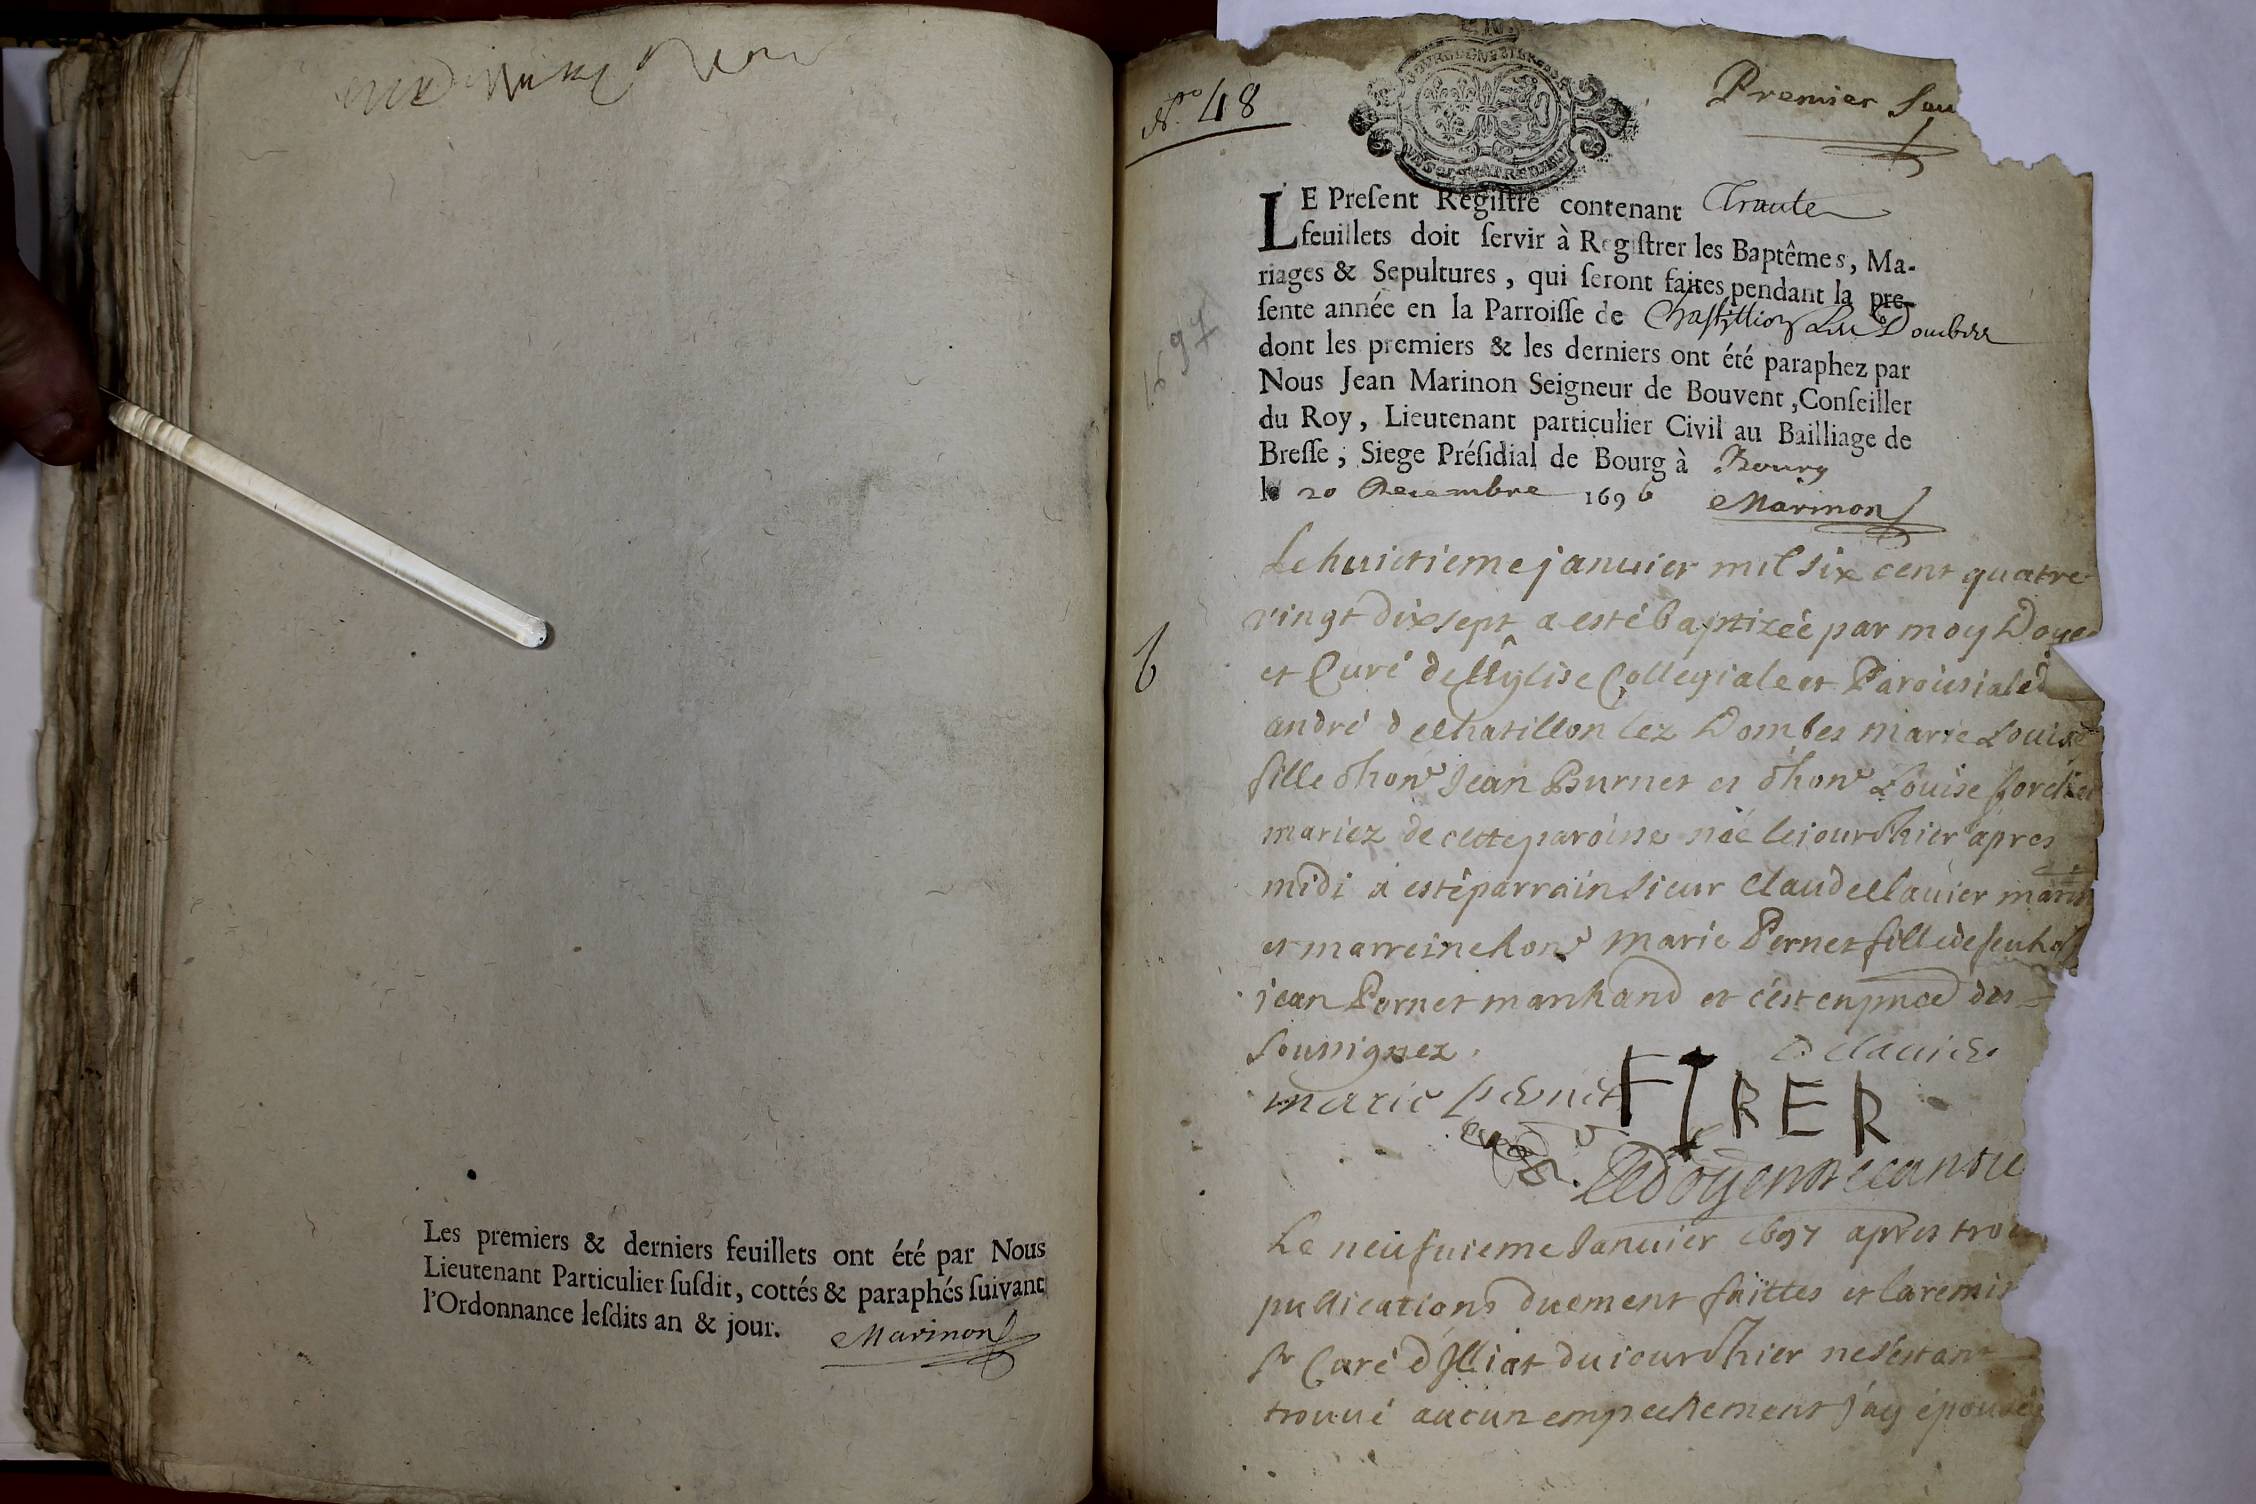 Les premiers & derniers feuillets ont été par Nous
Lieutenant Particulier ſuſdit, cottés & paraphés ſuivant
l'Ordonnance leſdits an & jour. Marinon
N.º 48
Premier
LE Preſent Regiſtre contenant Trante
feuillets doit ſervir à Regiſtrer les Baptêmes, Ma-
riages & Sepultures, qui ſeront faites pendant la pre-
ſente année en la Parroiſſe de Chastillion Dombes
dont les premiers & les derniers ont été paraphez par
Nous Jean Marinon Seigneur de Bouvent, Conſeiller
du Roy, Lieutenant particulier Civil au Bailliage de
Breſſe, Siege Préſidial de Bourg à Bourg
le 20 Decembre 1696 Marinon
1697
b
Le huictieme januier mil six cent quatre
vingt dix sept a esté baptizée par moy Doye
et Curé de l'Eglise Collegiale et Paroissiale d
andré de Chatillon lez Dombes marie Louise
fille d'hon^e Jean Burnet et d'hon^e Louise
mariez de cette paroisse née le jour d'hier apres
midi a esté parrain sieur Claude Clauier
et marreine hon^e marie Pernet fille de feu
jean Pernet marchand et c'est en pnce des
soussignez.
C. Clauier
marie pernet FIRER
Doyen
Le neufuieme Januier 1697 apres
publications duement faittes et la remis
Sr Curé d'Illiat du jour d'hier ne s'estant
trouué aucun empechement j'ay épousé